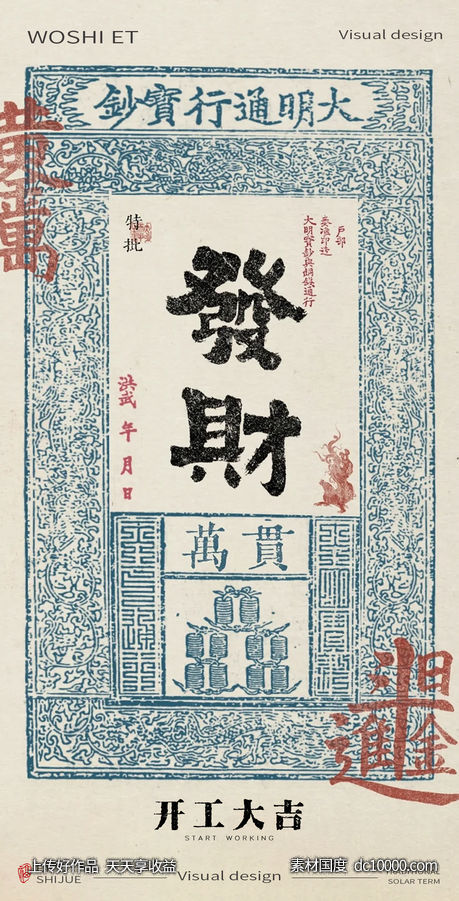 WOSHI ET
Visual design
大明通行寶鈔
特批
戶部
奏准印造
大明寶鈔與銅錢通行
發財
洪武 年 月 日
萬貫
日進斗金
开工大吉
START WORKING
上传好作品 天天享收益
素材国度 dc10000.com
SHIJUE
Visual design
SOLAR TERM